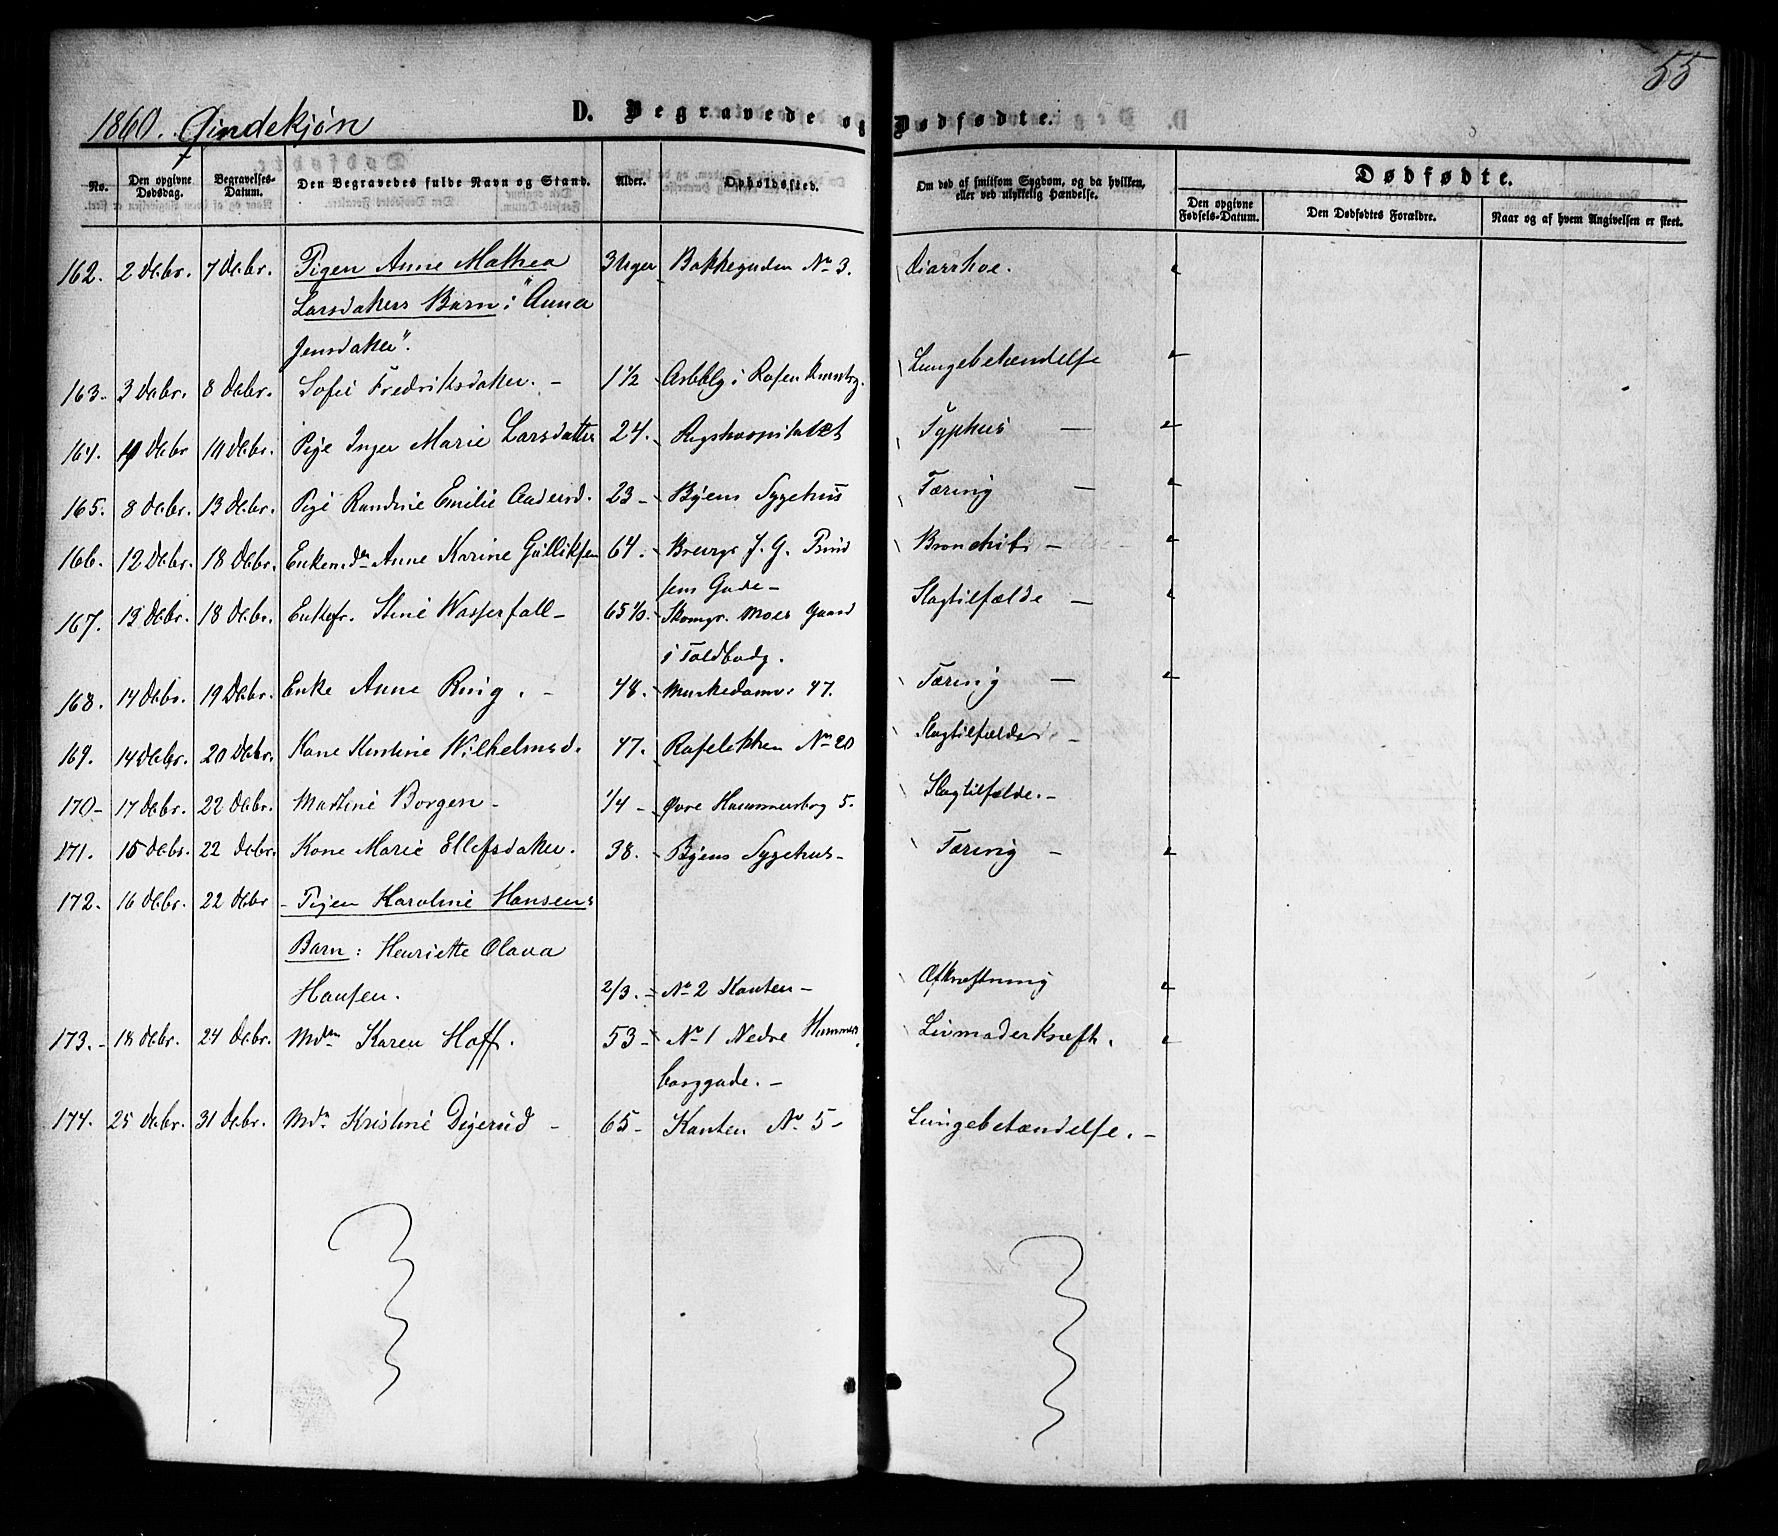 55
1860. Qindekjøn D. Begravede og Dødfødte.
No. Den opgivne Dødsdag. Begravelses-Datum. Den Begravedes fulde Navn og Stand. Alder. Opholdssted. Om død af smitsom Sygdom, og da hvilken, eller ved ulykkelig Hændelse. Dødfødte.
Den opgivne Fødsels-Datum. Den Dødfødtes Forældre. Naar og af hvem Angivelsen er skeet.
162. 2 Debr. 7 Debr. Pigen Anne Mathea 3 Uger Bakkegaden No 3. Diarrhoe.
Larsdatters Barn: "Anna
Jensdatter".
163. 3 Debr. 8 Debr. Sofie Fredriksdatter. - 1½ Lungebetændelse
164. 4 Debr 10 Debr. Pige Inger Marie Larsdatter 24. Rigshospitalet Typhus —
165. 8 Debr. 13 Debr. Pige Randine Emilie Andersd. 23 - Byens Sygehus Tæring —
166. 12 Debr. 18 Debr. Enkemdm Anne Karine Gulliksen 64. J. G. Bronchit -
sens Gade -
167. 13 Debr. 18 Debr. Enkefr. Stine Wasserfall - 65 Skomgr. Moes Gaard Slagtilfælde —
i Toldbodg.
168. 14 Debr. 19 Debr. Enke Anne Ring. - 48. 47. Tæring —
169. 14 Debr. 20 Debr. Kone Kirstine Wilhelmsd. 47. Raseløkken No 20 Slagtilfælde -
170 - 17 Debr. 22 Debr. Martine Borgen - 1/4 - Øvre Hammersborg 5. Slagtilfælde. -
171. 15 Debr. 22 Debr. Kone Marie Ellefsdatter. 38. Byens Sygehus - Tæring -
172. 16 Debr. 22 Debr - Pigen Karoline Hansens
Barn: Henriette Olava
Hansen. 2/3. - No 2 Kanten - Afkræftning
173. - 18 Debr. 24 Debr. Mdm Karen Hoff. 53 - No 1 Nedre Hammers Livmoderkræft.
borggade. -
174. 25 Debr. 31 Debr. Mdm Kristine Digerud - 65 - Kanten No 5 - Lungebetændelse. -